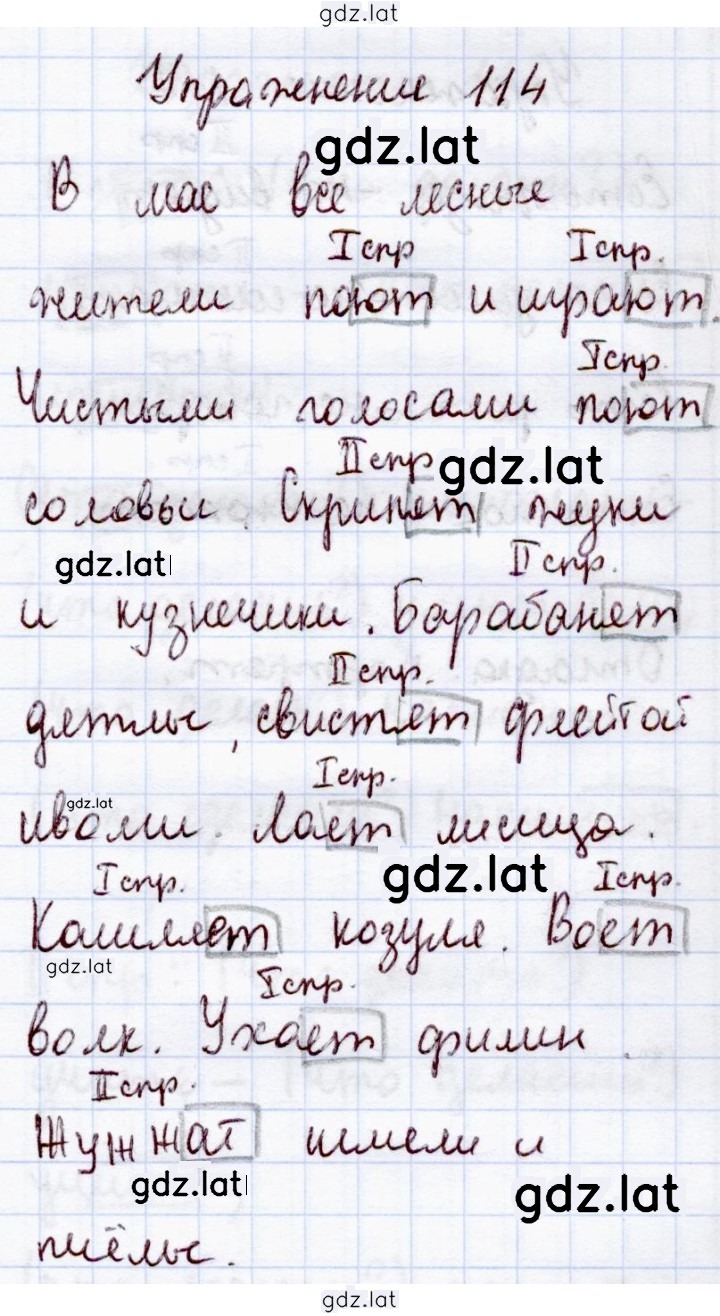 gdz.lat
Упражнение 114
gdz.lat
В мае все лесные
I спр I спр.
жители поют и играют.
I спр.
Чистыми голосами поют
II спр gdz.lat
соловьи. Скрипят жуки
gdz.lat II спр.
и кузнечики. Барабанят
II спр.
дятлы, свистят флейтой
I спр.
gdz.lat
иволги. Лает лисица.
I спр. gdz.lat I спр.
Кашляет козуля. Воет
gdz.lat I спр.
волк. Ухает филин.
II спр.
Жужжат шмели и
gdz.lat gdz.lat
пчёлы.
gdz.lat